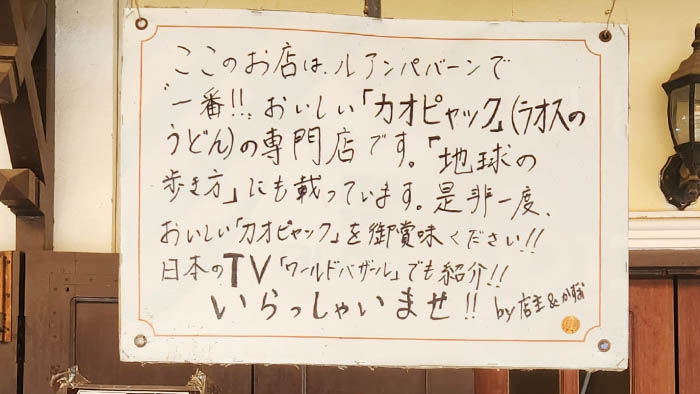 ここのお店は、ルアンパバーンで
"一番!!"、おいしい「カオピャック」(ラオスの
うどん)の専門店です。「地球の
歩き方」にも載っています。是非一度、
おいしい「カオピャック」を御賞味ください!!
日本のTV「ワールドバザール」でも紹介!!
いらっしゃいませ!! by 店主&かずお